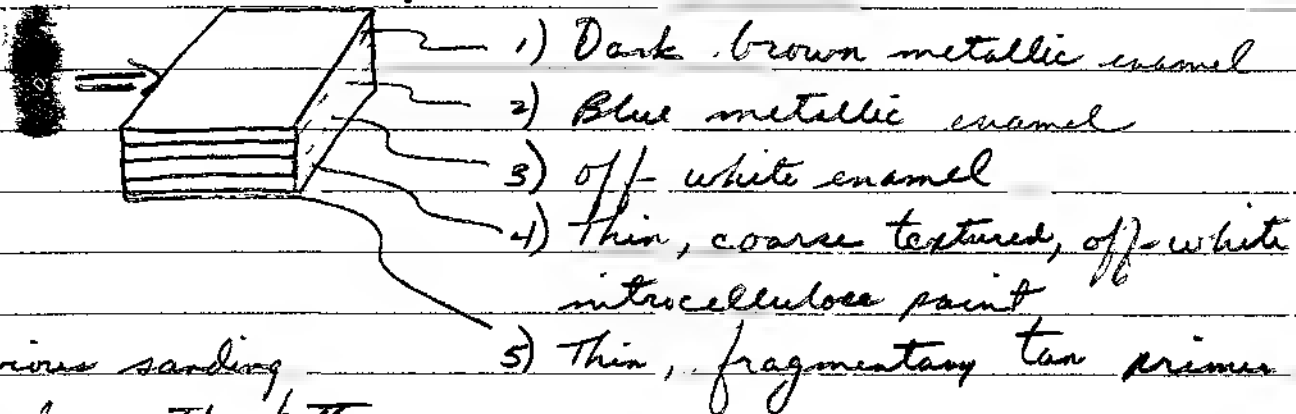 1) Dark brown metallic enamel
2) Blue metallic enamel
3) off-white enamel
4) Thin, coarse textured, off-white
nitrocellulose paint
sanding 5) Thin, fragmentary tan primer